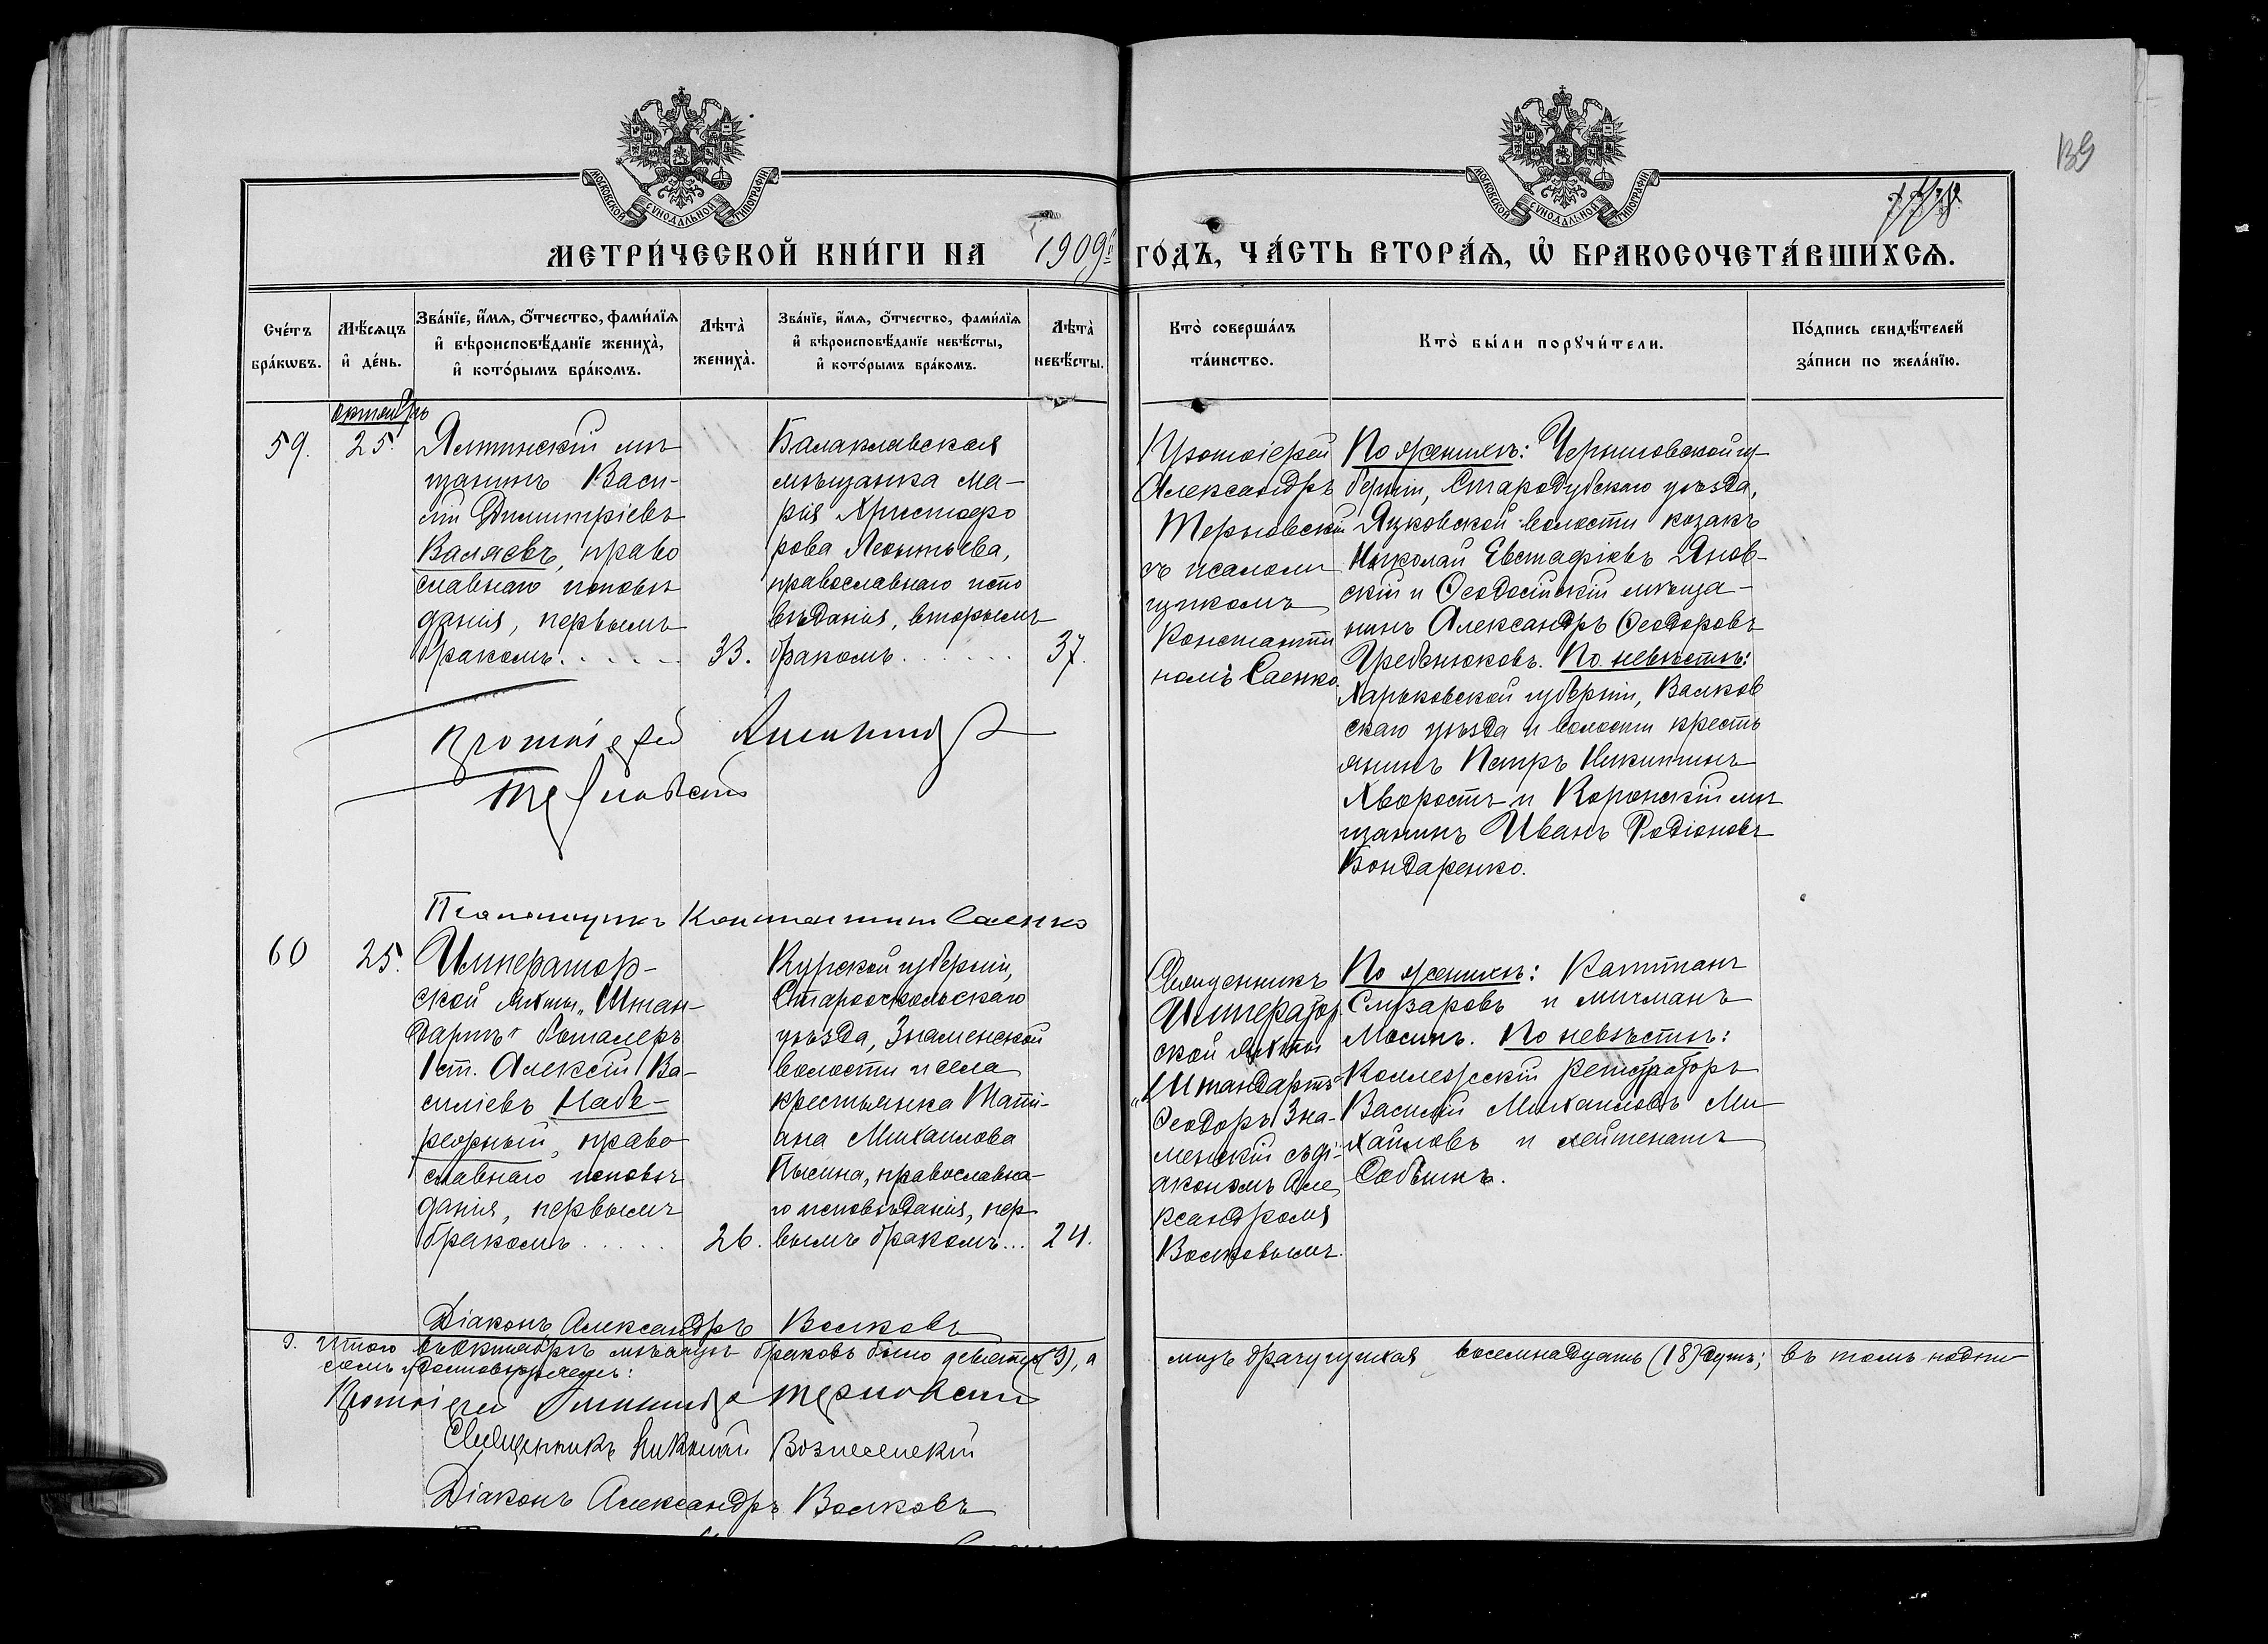 139
МОСКОВСКОЙ СѴНОДАЛЬНОЙ ТИПОГРАФІИ
МОСКОВСКОЙ СѴНОДАЛЬНОЙ ТИПОГРАФІИ
МЕТРИ́ЧЕСКОЙ КНИ́ГИ НА 1909й ГО́ДЪ, ЧА́СТЬ ВТОРА́Ѧ, Ѡ҆ БРАКОСОЧЕТА́ВШИХСѦ.
Сче́тъ бра́кωвъ.
Мѣ́сяцъ и҆ де́нь.
Зва́нїе, и҆́мѧ, о҆́тчество, фами́лїѧ
и҆ вѣроисповѣ́данїе жениха̀,
и҆ кото́рымъ бра́комъ.
Лѣта̀
жениха̀.
Зва́нїе, и҆́мѧ, о҆́тчество, фами́лїѧ
и҆ вѣроисповѣ́данїе невѣ́сты,
и҆ кото́рымъ бра́комъ.
Лѣта̀
невѣ́сты.
Кто̀ соверша́лъ
та́инство.
Кто̀ бы́ли порꙋчи́тели.
По́дпись свидѣ́телей
за́писи по жела́нїю.
октябрь
59.
25.
Ялтинскій мѣ
щанинъ Васи-
лій Димитріевъ
Валяевъ, право
славнаго исповѣ
данія, первымъ
бракомъ.
33.
Балаклавская
мѣщанка Ма-
рія Христофо
рова Леонтьева,
православнаго испо
вѣданія, вторымъ
бракомъ.
37.
Протоіерей
Александръ
Терновскій
съ псалом
щикомъ
Константи
номъ Саенко.
По женихѣ: Черниговской гу
берніи, Стародубскаго уѣзда,
Яцковской волости козакъ
Николай Евстафіевъ Янов-
скій и Ѳеодосійскій мѣща-
нинъ Александръ Ѳеодоровъ
Гребенюковъ. По невѣстѣ:
Харьковской губерніи, Валков
скаго уѣзда и волости кресть
янинъ Петръ Никитинъ
Хворостъ и Коропскій мѣ
щанинъ Иванъ Родіоновъ
Бондаренко.
Протоіерей Александръ
Терновскій
Псаломщикъ Константинъ Саенко
60
25.
Император-
ской яхты „Штан-
дартъ"
1 ст. Алексѣй Ва-
силіевъ Набе-
режный, право
славнаго исповѣ
данія, первымъ
бракомъ
26.
Курской губерніи,
Старооскольскаго
уѣзда, Знаменской
волости и села
крестьянка Тати-
ана Михаилова
Пысина, православна-
го исповѣданія, пер
вымъ бракомъ...
24.
Священникъ
Император
ской яхты
„Штандартъ"
Ѳеодоръ Зна-
менскій съ ді-
акономъ Але
ксандромъ
Волковымъ.
По женихѣ: Капитанъ
Слизаровъ и мичманъ
Мосинъ. По невѣстѣ:
Коллежскій регистраторъ
Василій Михаиловъ Ми
хайловъ и лейтенантъ
Собѣинъ.
Діаконъ Александръ Волковъ
Итого въ октябрѣ мѣсяцѣ браковъ было девять (9), а лицъ брачущихся восемнадцать (18) душъ; въ томъ подпи
семъ удостовѣряемъ:
Протоіерей Александръ Терновскій
Священникъ Николай Вознесенскій
Діаконъ Александръ Волковъ